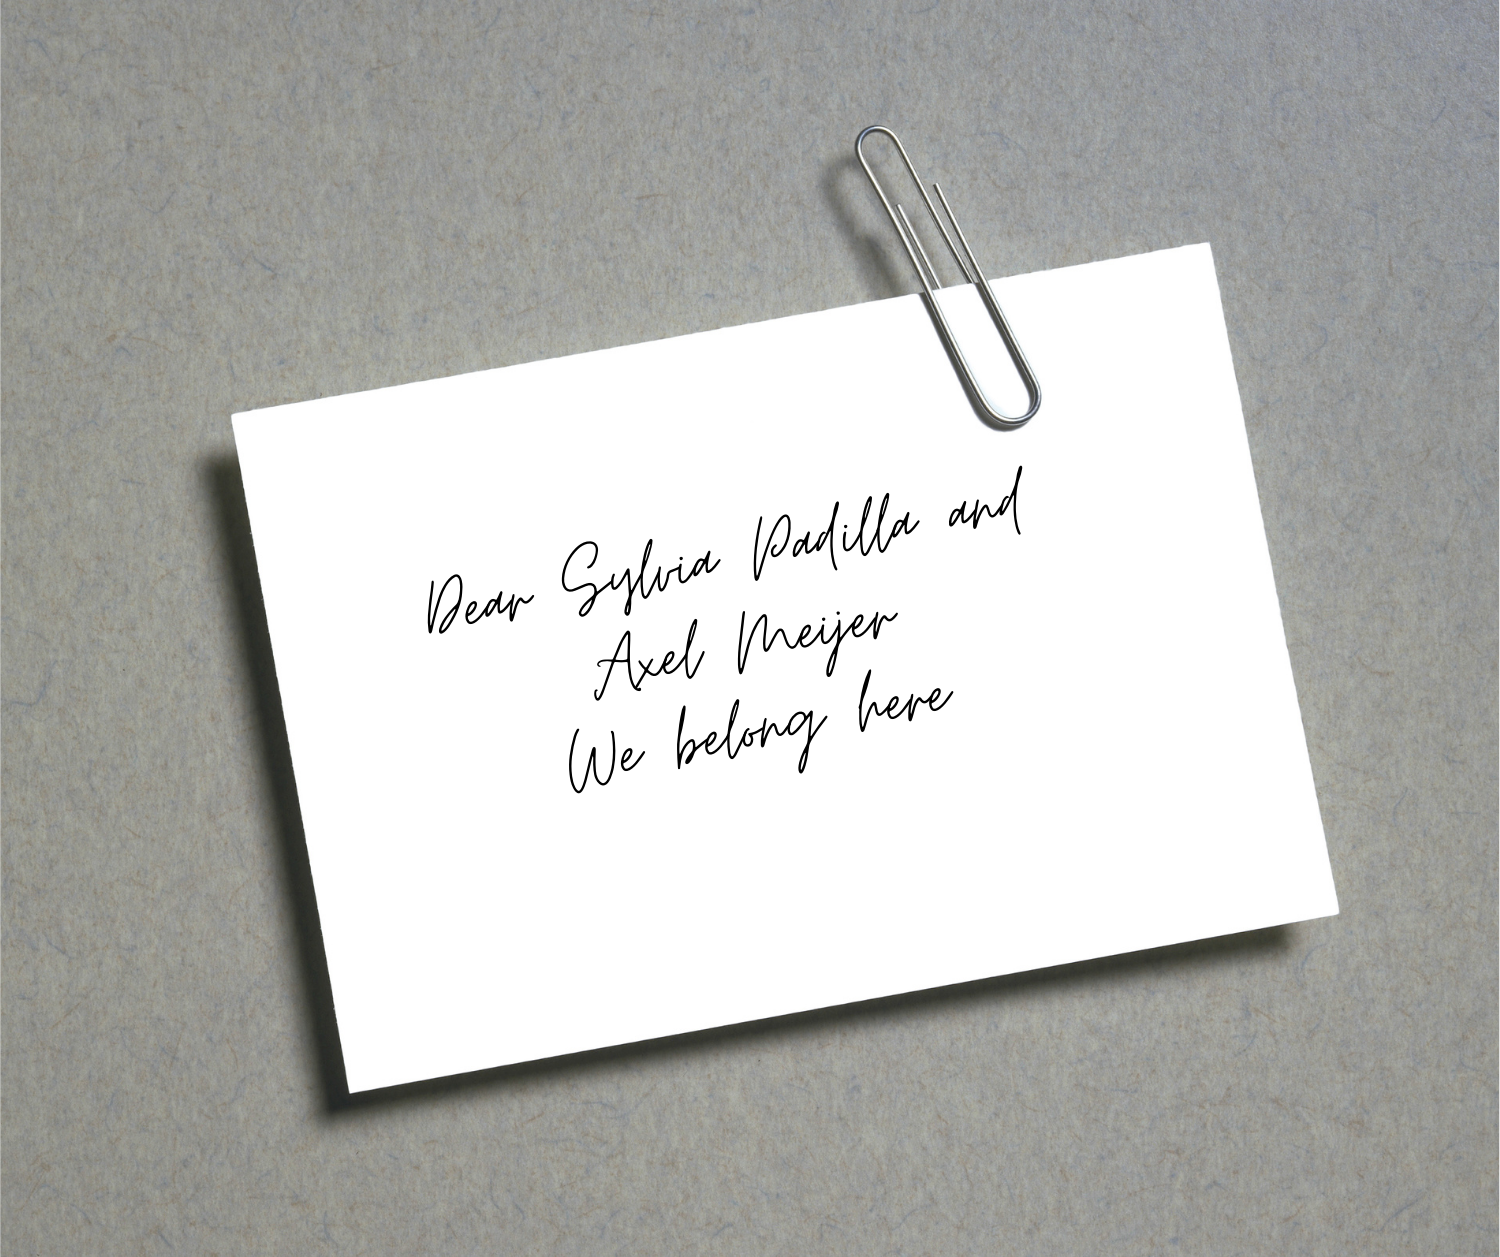 Dear Sylvia Padilla and
Axel Meijer
We belong here